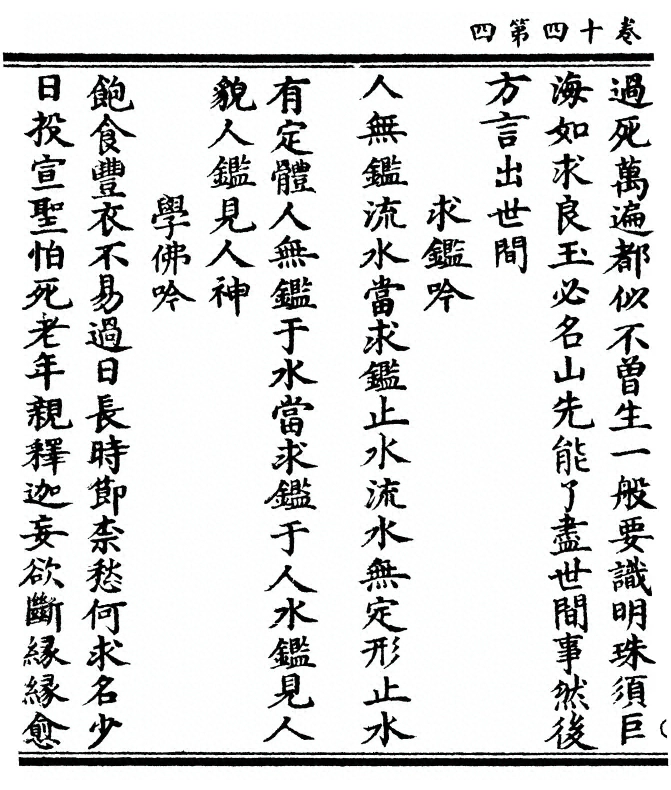 卷十四第四
過死萬遍都似不曾生一般要識明珠須巨
海如求良玉必名山先能了盡世間事然後
方言出世間
求鑑吟
人無鑑流水當求鑑止水流水無定形止水
有定體人無鑑于水當求鑑于人水鑑見人
貌人鑑見人神
學佛吟
飽食豐衣不易過日長時節柰愁何求名少
日投宣聖怕死老年親釋迦妄欲斷緣緣愈